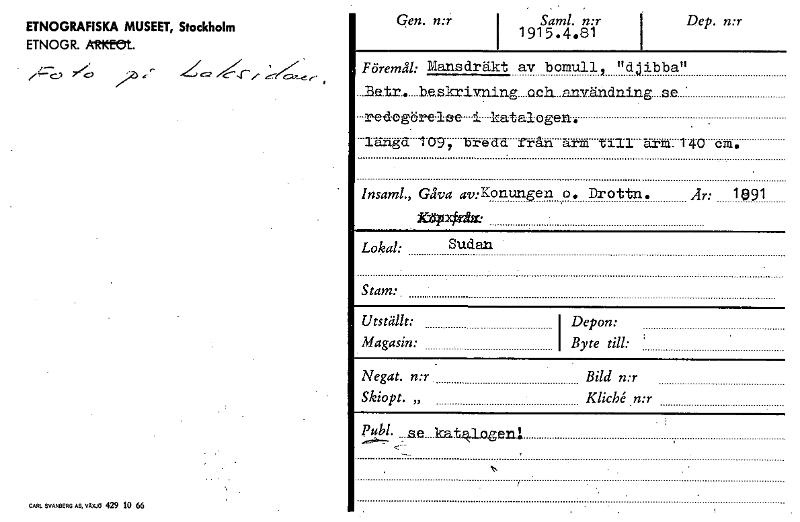 ETNOGRAFISKA MUSEET, Stockholm
ETNOGR. ARKEOL.
Foto på baksidan.
Gen. n:r Saml. n:r Dep. n:r
1915.4.81
Föremål: Mansdräkt av bomull, "djibba"
Betr. beskrivning och användning se
redogörelse i katalogen.
längd 109, bredd från ärm till ärm 140 cm.
Insaml., Gåva av: Konungen o. Drottn. År: 1891
Köp från:
Lokal: Sudan
Stam:
Utställt: Depon:
Magasin: Byte till:
Negat. n:r Bild n:r
Skiopt. „ Kliché n:r
Publ. se katalogen!
CARL SVANBERG AB, VÄXJÖ 429 10 66